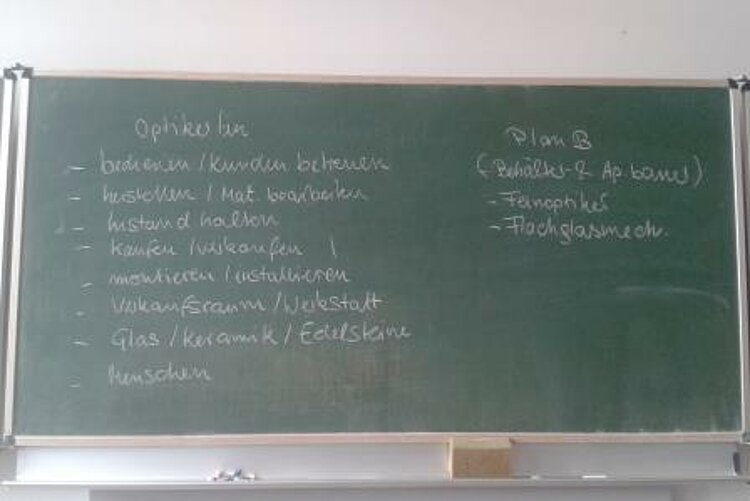 Optiker/in
- bedienen / Kunden betreuen
- herstellen / Mat. bearbeiten
- Instand halten
- kaufen / verkaufen /
- montieren / installieren
- Verkaufsraum / Werkstatt
- Glas / Keramik / Edelsteine
- Menschen
Plan B
(Behälter- & Ap. bauer)
- Feinoptiker
- Flachglasmech.